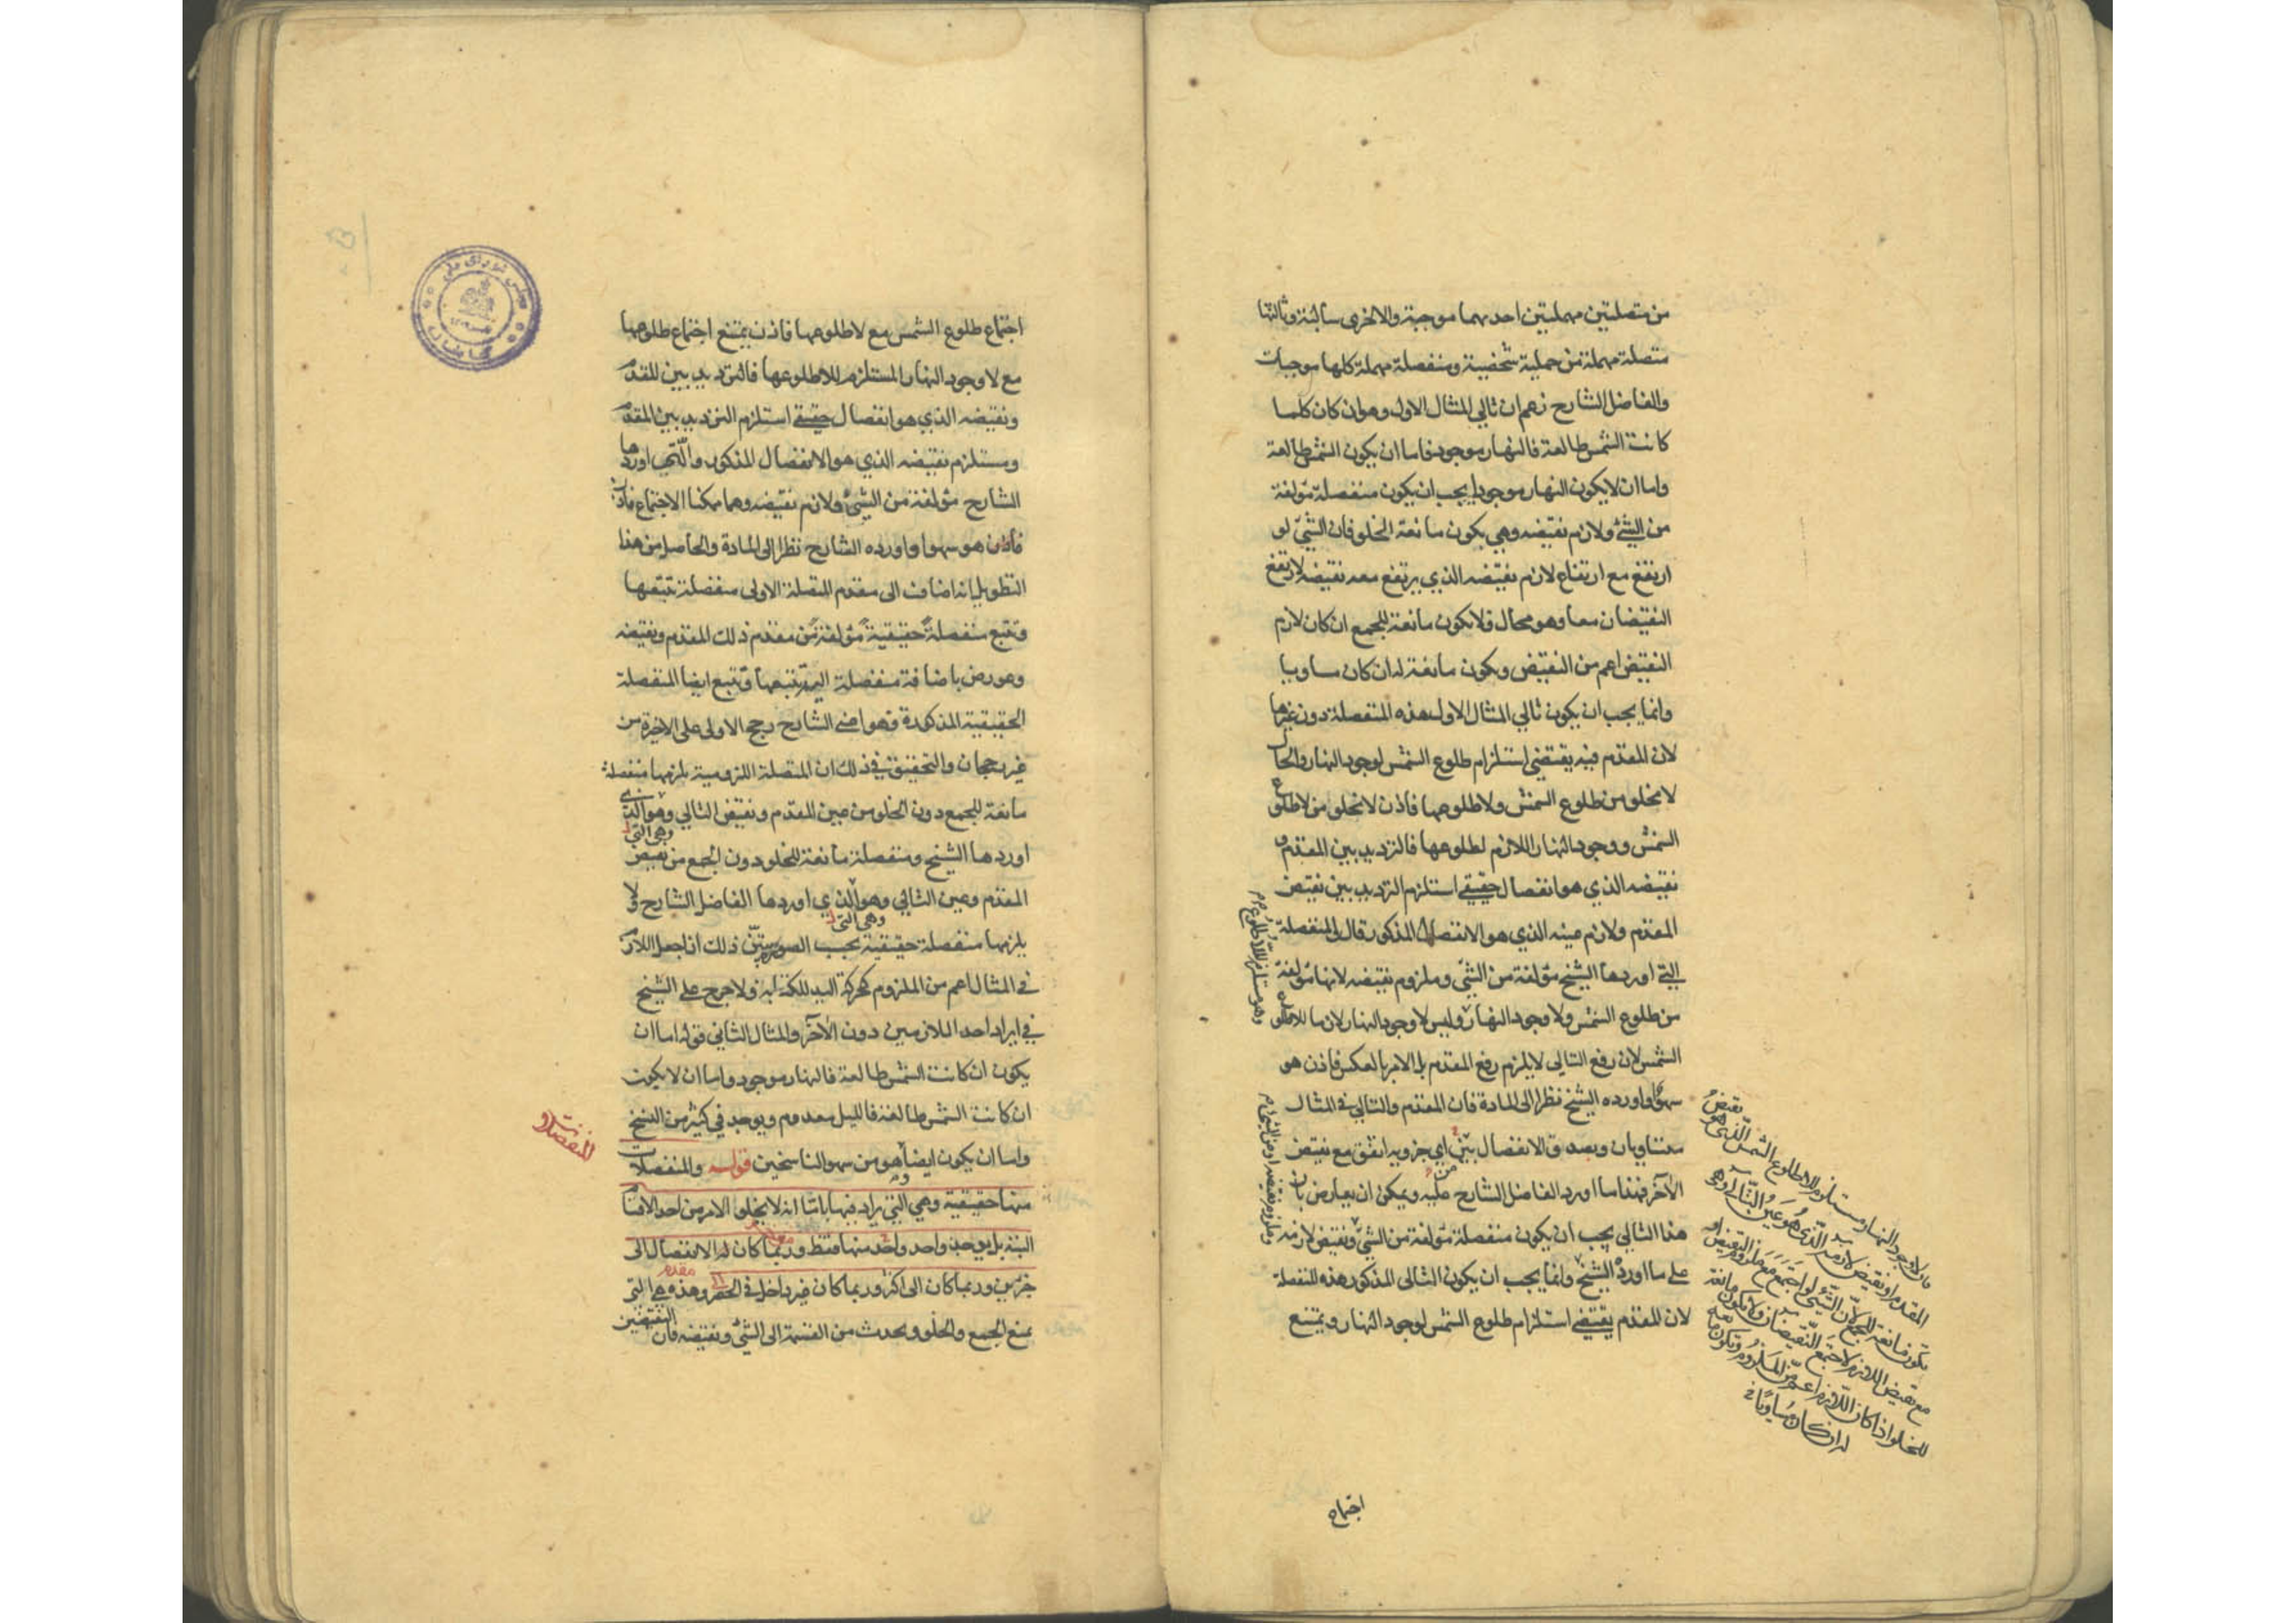 من متصلتين مهملتين احديهما موجبة والاخرى سالبة وثالثها
متصلة مهملة من حملية شخصية ومنفصلة مهملة كلها موجبات
والفاضل الشارح زعم ان تالي المثال الاول وهو ان كان كلما
كانت الشمس طالعة فالنهار موجود فاما ان يكون الشمس طالعة
واما ان لا يكون النهار موجودا يجب ان يكون منفصلة مؤلفة
من الشئ ولازم نقيضه وهي يكون مانعة الخلو فان الشئ لو
ارتفع مع ارتفاع لازم نقيضه الذي يرتفع معه نقيضه لارتفع
النقيضان معا وهو محال ولا يكون مانعة للجمع ان كان لازم
النقيض اعم من النقيض ويكون مانعة له ان كان مساويا
وانما يجب ان يكون تالي المثال الاول هذه المنفصلة دون غيرها
لان المقدم فيه يقتضي استلزام طلوع الشمس لوجود النهار والحال
لا يخلو من طلوع الشمس ولا طلوعها فاذن لا يخلو من لا طلوع
الشمس ووجود النهار اللازم لطلوعها فالترديد بين المقدم و
نقيضه الذي هو انفصال حقيقي استلزم الترديد بين نقيض
المقدم ولازم عينه الذي هو الانفصال المذكور قال والمنفصلة
التي اوردها الشيخ مؤلفة من الشئ وملزوم نقيضه لانها مؤلفة
من طلوع الشمس ولا وجود النهار وليس لا وجود النهار لازما للاطلوع
الشمس لان رفع التالي لا يلزم رفع المقدم بل الامر بالعكس فاذن هو
سهو او اورده الشيخ نظرا الى المادة فان المقدم والتالي في المثال
متساويان ويصدق الانفصال بين اي جزويه اتفق مع نقيض
الآخر فهذا ما اورد الفاضل الشارح عليه ويمكن ان يعارض بان
هذا التالي يجب ان يكون منفصلة مؤلفة من الشئ ونقيض لازمه
على ما اورده الشيخ وانما يجب ان يكون التالي المذكور هذه المنفصلة
لان المقدم يقتضي استلزام طلوع الشمس لوجود النهار ويمتنع
وهو مستلزم للاطلوع
فان لا وجود النهار مستلزم للاطلوع الشمس الذي هو نقيض
المقدم او نقيض لازمه الذي هو عين التالي وهي
تكون مانعة للجمع لان الشئ لو اجتمع مع ملزوم النقيض او
مع نقيض اللازم لاجتمع النقيضان ولا يكون مانعة
للخلو اذا كان اللازم اعم من الملزوم وتكون مانعة
له ان كان مساويا
اجتماع
اجتماع طلوع الشمس مع لا طلوعها فاذن يمتنع اجتماع طلوعها
مع لا وجود النهار المستلزم للاطلوعها فالترديد بين المقدم
ونقيضه الذي هو انفصال حقيقي استلزم الترديد بين المقدم
ومستلزم نقيضه الذي هو الانفصال المذكور والتي اوردها
الشارح مؤلفة من الشئ ولازم نقيضه وهما ممكنا الاجتماع فاذن
فاذن هو سهو او اورده الشارح نظرا الى المادة والحاصل من هذا
التطويل انه اضاف الى مقدم المتصلة الاولى منفصلة تتبعها
وتتبع منفصلة حقيقية مؤلفة من مقدم ذلك المقدم ونقيضه
وعورض باضافة منفصلة اليه تتبعها وتتبع ايضا المنفصلة
الحقيقية المذكورة فهو اعني الشارح رجح الاولى على الاخيرة من
غير رجحان والتحقيق في ذلك ان المتصلة اللزومية يلزمها منفصلة
مانعة للجمع دون الخلو من عين المقدم ونقيض التالي وهو الذي
وهي التي
اوردها الشيخ ومنفصلة مانعة للخلو دون الجمع من نقيض
المقدم وعين التالي وهو الذي اوردها الفاضل الشارح ولا
وهي التي
يلزمها منفصلة حقيقية بحسب الصورة يتبين ذلك اذا جعل اللازم
في المثال اعم من الملزوم كحركة اليد للكتابة ولا حرج على الشيخ
في ايراد احد اللازمين دون الآخر والمثال الثاني قوله اما ان
يكون ان كانت الشمس طالعة فالنهار موجود واما ان لا يكون
ان كانت الشمس طالعة فالليل معدوم ويوجد في كثير من النسخ
واما ان يكون ايضا وهو من سهو الناسخين قوله والمنفصلات
المنفصلات
منها حقيقية وهي التي يراد فيها باما انه لا يخلو الامر من احد الاقسام
البتة بل يوجد واحد واحد منها فقط وربما كان له الانفصال الى
جزءين وربما كان الى اكثر وربما كان غير داخل في الحصر وهذه هي التي
يمنع الجمع والخلو ويحدث من القسمة الى الشئ ونقيضه فان
النقيضين
مجلس شورای ملی
کتابخانه